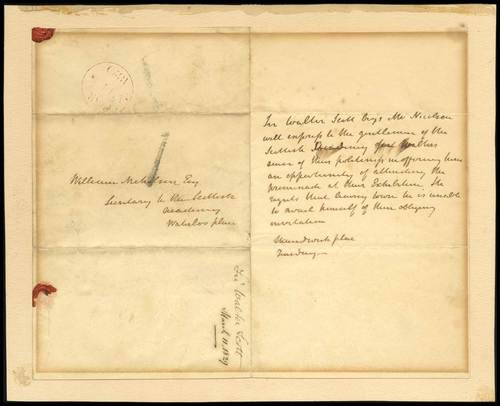 William Nicholson Esq
Secretary to the Scottish
Academy
Waterloo place
Sir Walter Scott begs Mr Nicolson
will express to the gentlemen of the
Scottish Academy Sir Walters
sense of their politeness in offering him
an opportunity of attending the
promenade at their Exhibition He
regrets that leaving town he is unable
to avail himself of their obliging
invitation
Shandwick place
Tuesday
Sir Walter Scott
March 11. 1829